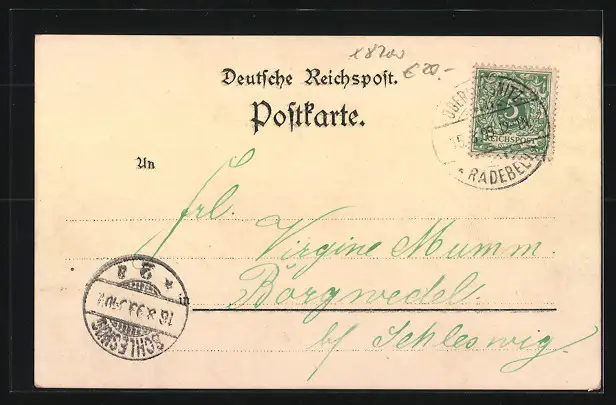 x8200
€ 20.-
Deutsche Reichspost.
Postkarte.
5
REICHSPOST
RADEBEUL
An
Frl.
Virgine Mumm.
in Borgwedel.
b/ Schleswig.
2 a
16.8.99
SCHLESWIG